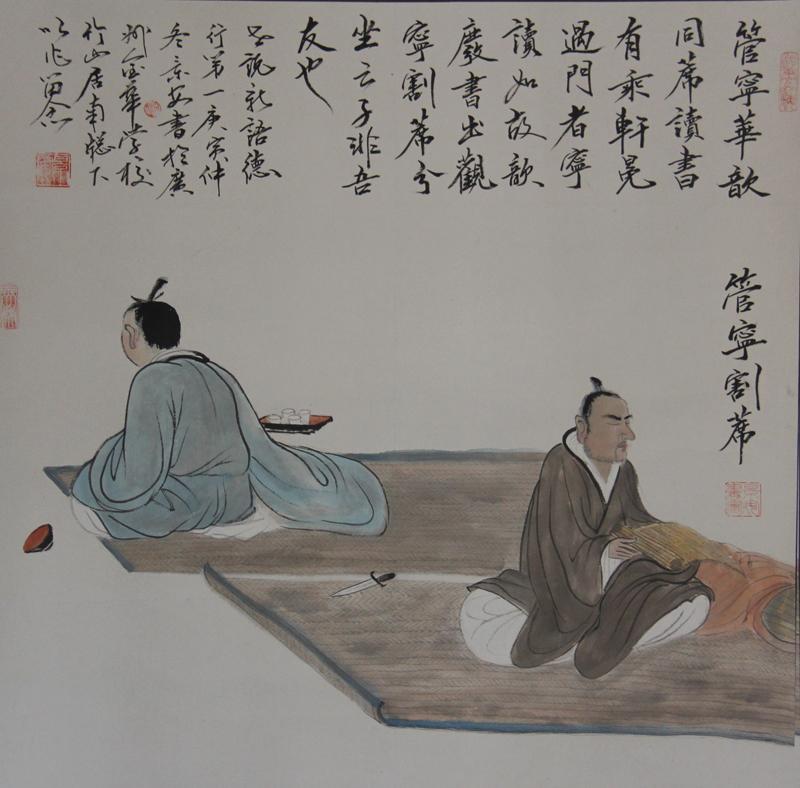 管寧華歆
同蓆讀書
有乘軒冕
過門者寧
讀如故歆
廢書出觀
寧割蓆分
坐云子非吾
友也
世說新語德
行第一庚寅仲
冬京安書於廣
州金華學校
竹山居南牕下
以作留念
管寧割蓆